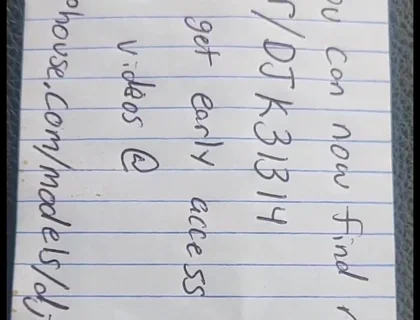 ou can now find
/DJK31314
get early access
videos @
house.com/models/dj